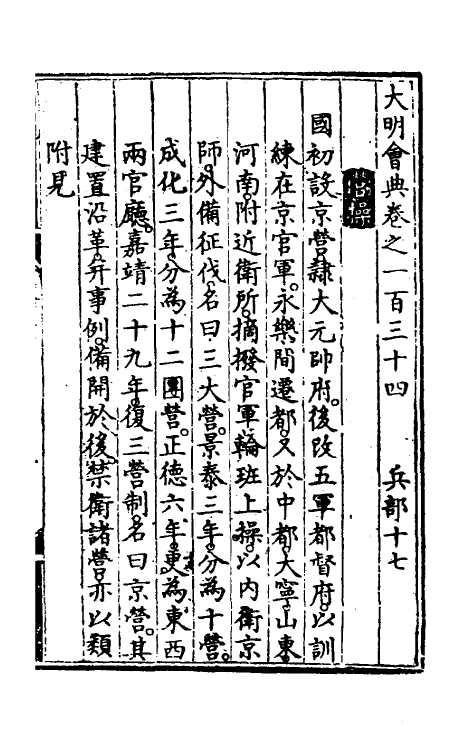 大明會典卷之一百三十四　兵部十七
營操
國初設京營。隷大元帥府。後改五軍都督府。以訓
練在京官軍。永樂間遷都。又於中都。大寧。山東。
河南。附近衛所。摘撥官軍。輪班上操。以內衛京
師。外備征伐。名曰三大營。景泰三年。分為十營。
成化三年。分為十二團營。正德六年。更為東西
兩官廳。嘉靖二十九年。復三營制。名曰京營。其
建置沿革。并事例。備開於後。禁衛諸營。亦以類
附見